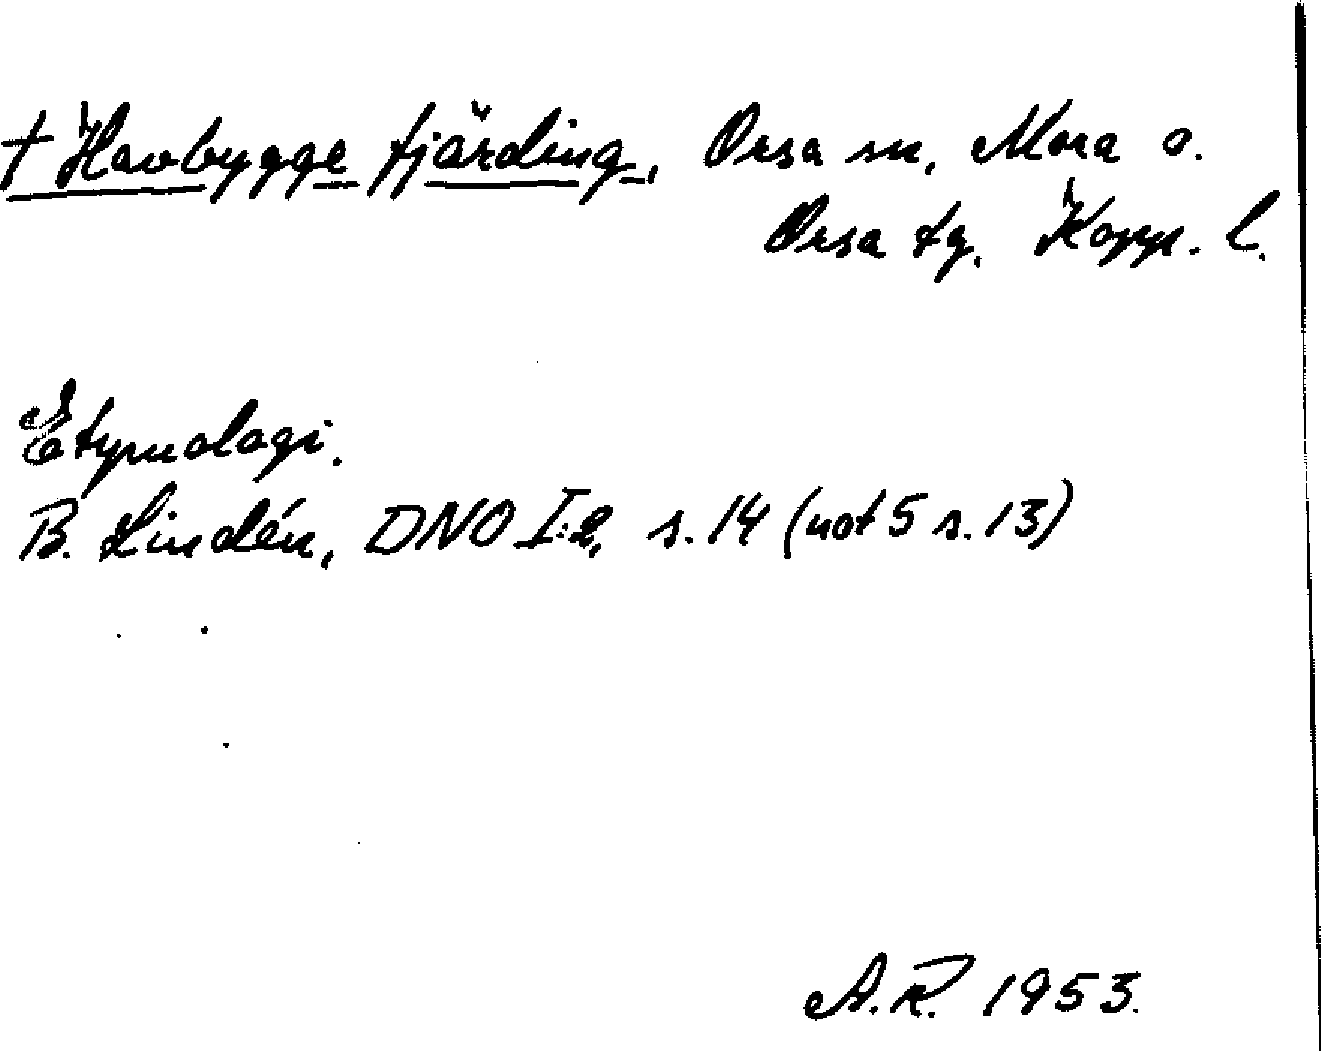 † Havbygge fjärding, Orsa sn, Mora o.
Orsa tg. Kopp. l.
Etymologi.
B. Lindén, DNO I:2, s. 14 (not 5 s. 13)
A.R. 1953.